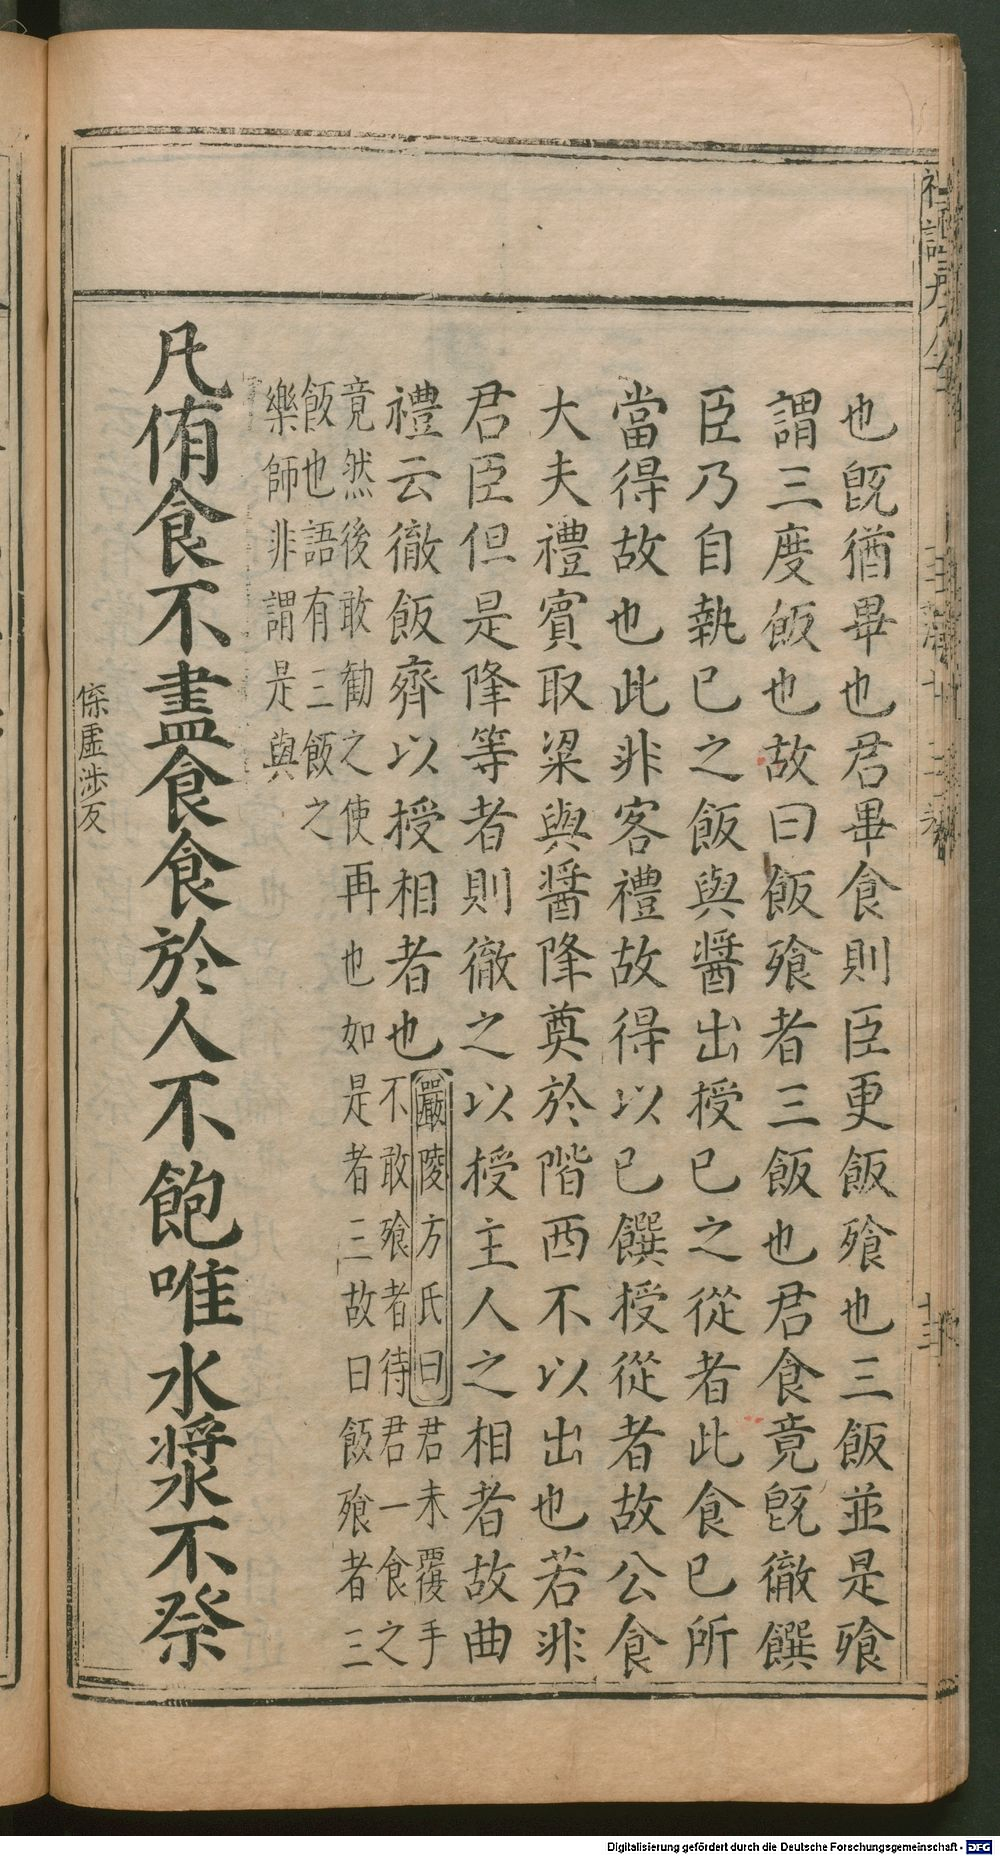 也旣猶畢也君畢食則臣更飯飱也三飯並是飱
謂三度飯也故曰飯飱者三飯也君食竟旣徹饌
臣乃自執已之飯與醬出授已之從者此食已所
當得故也此非客禮故得以已饌授從者故公食
大夫禮賓取粱與醬降奠於階西不以出也若非
君臣但是降等者則徹之以授主人之相者故曲
禮云徹飯齊以授相者也嚴陵方氏曰君未覆手
不敢飱者待君一食之
竟然後敢勸之使再也如是者三故曰飯飱者三
飯也語有三飯之
樂師非謂是與
凡侑食不盡食食於人不飽唯水漿不祭
傺虛涉反
Digitalisierung gefördert durch die Deutsche Forschungsgemeinschaft - DFG